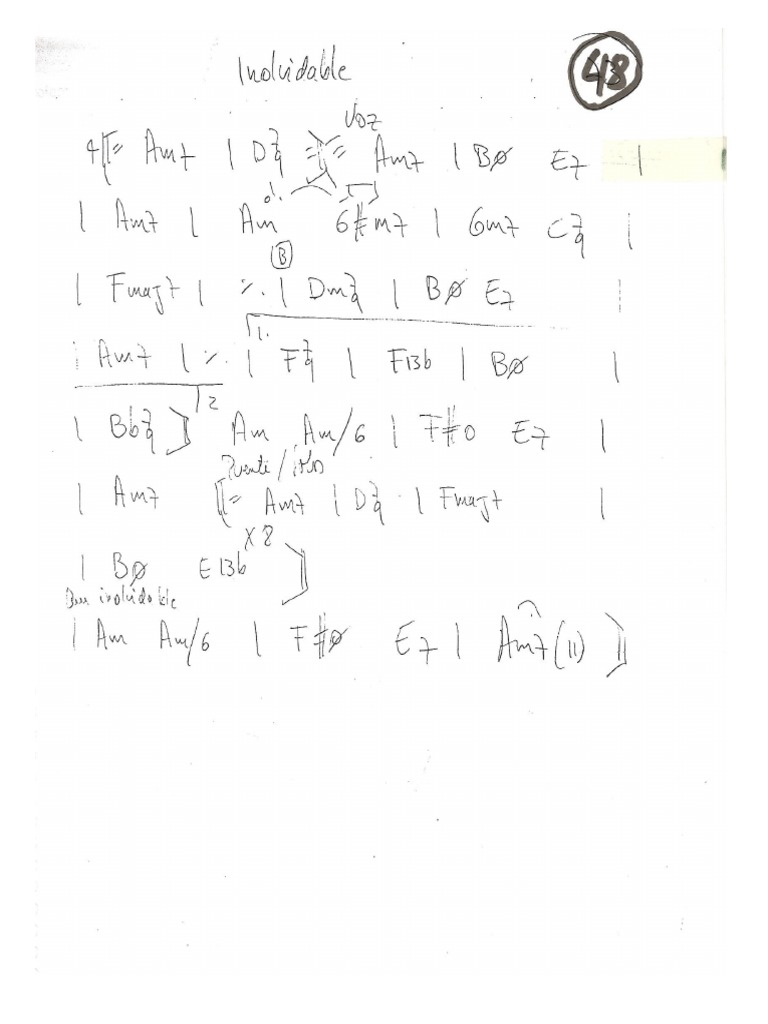 Inolvidable
48
Voz
4 ‖: Am7 | D7/9 :‖: Am7 | BØ E7 |
| Am7 | Am G#m7 | Gm7 C7/9 |
B
| Fmaj7 | ٪ | Dm7/9 | BØ E7 |
1.
| Am7 | ٪ | F7/9 | F13b | BØ |
2
| Bb7/9 :‖ Am Am/6 | F#Ø E7 |
Puente/
| Am7 ‖: Am7 | D7/9 | Fmaj7 |
X8
| BØ E13b ‖
inolvidable
| Am Am/6 | F#Ø E7 | Am7(11) ‖